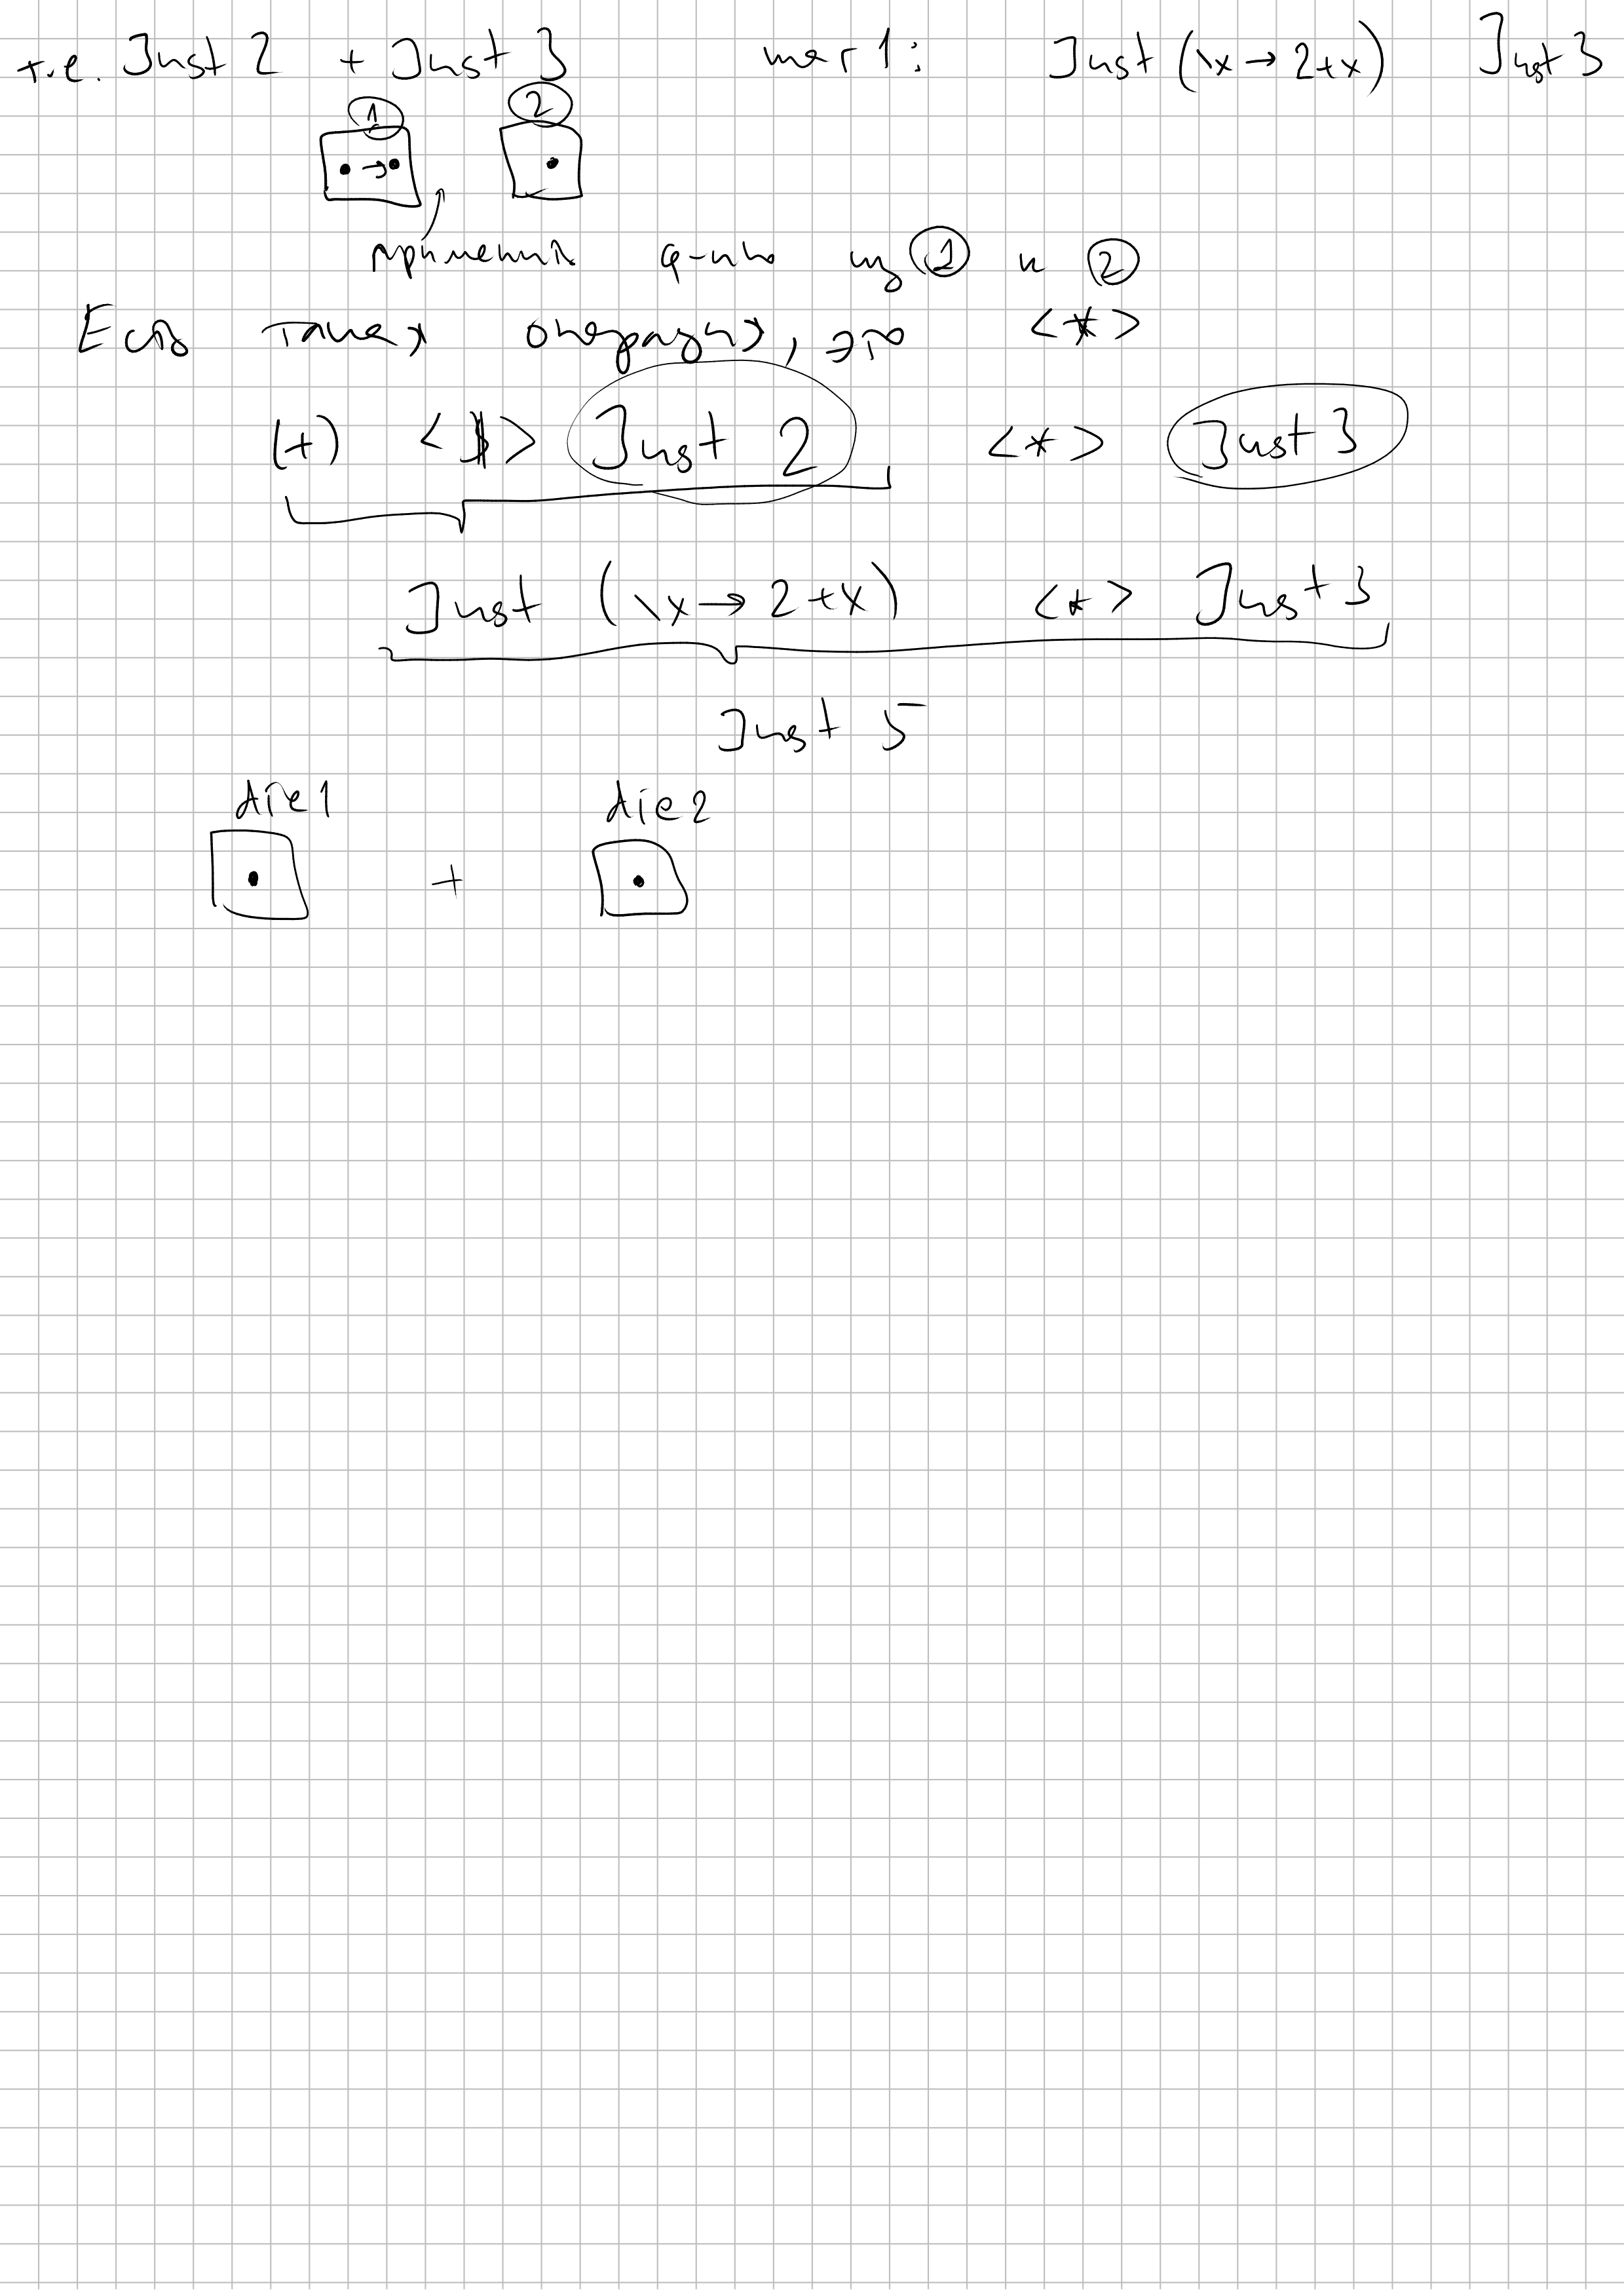 т.е. Just 2 + Just 3 шаг 1: Just (\x → 2+x) Just 3
1 2
применить ф-ию из 1 к 2
Есть такая операция, это <*>
(+) <$> Just 2 <*> Just 3
Just (\x → 2+x) <*> Just 3
Just 5
die1 die2
+